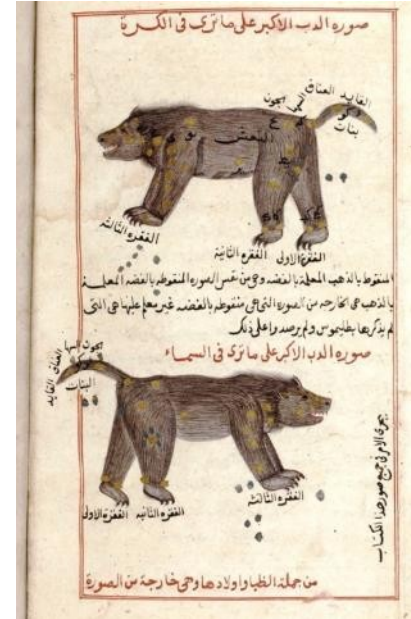 صورة الدب الاكبر على ما ترى فى الكرة
القايد
العناق
الجون
بنات
النعش
الفقره الثالثه
الفقره الثانية
الفقرة الاولى
المنقوط بالذهب المعلمة بالفضه وهى من نفس الصورة المنقوطه بالفضه المعلمة
بالذهب هى الخارجه من الصورة التى هى منقوطه بالفضه غير معلم عليها هى التى
لم يذكرها بطلميوس ولم يرصد واعلى ذلك
صورة الدب الاكبر على ما ترى فى السماء
يجرى الامر فى جميع صور هذا الكتاب
القايد
العناق
البنات
الفقره الثالثه
الفقره الثانيه
الفقرة الاولى
من جملة الظبا واولادها وهى خارجة من الصورة